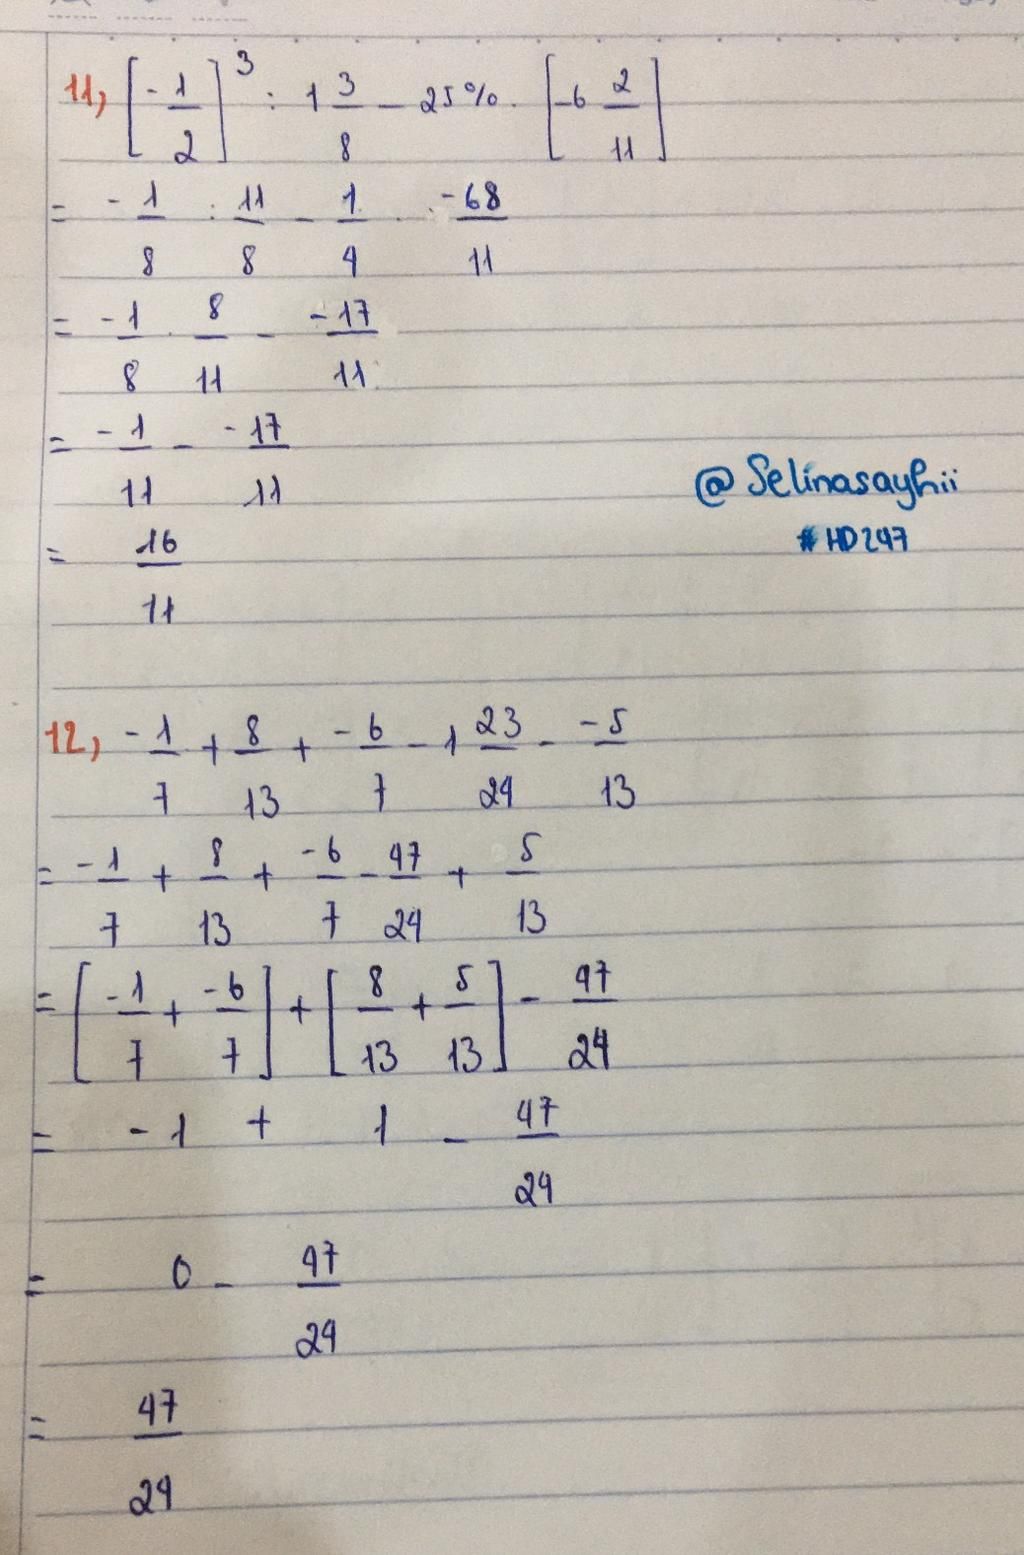 11, [-1/2]^3 : 1 3/8 - 25% . [-6 2/11]
= -1/8 : 11/8 - 1/4 . -68/11
= -1/8 . 8/11 - -17/11
= -1/11 - -17/11
@Selinasayhii
= 16/11
#HD247
12, -1/7 + 8/13 + -6/7 - 1 23/24 - -5/13
= -1/7 + 8/13 + -6/7 - 47/24 + 5/13
= [-1/7 + -6/7] + [8/13 + 5/13] - 47/24
= -1 + 1 - 47/24
= 0 - 47/24
= 47/24